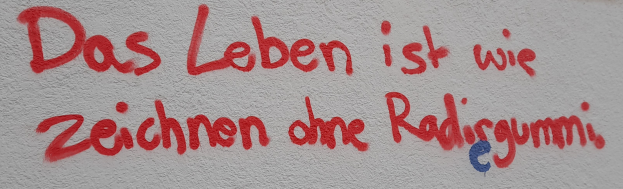 Das Leben ist wie
zeichnen ohne Radirgummi.
e